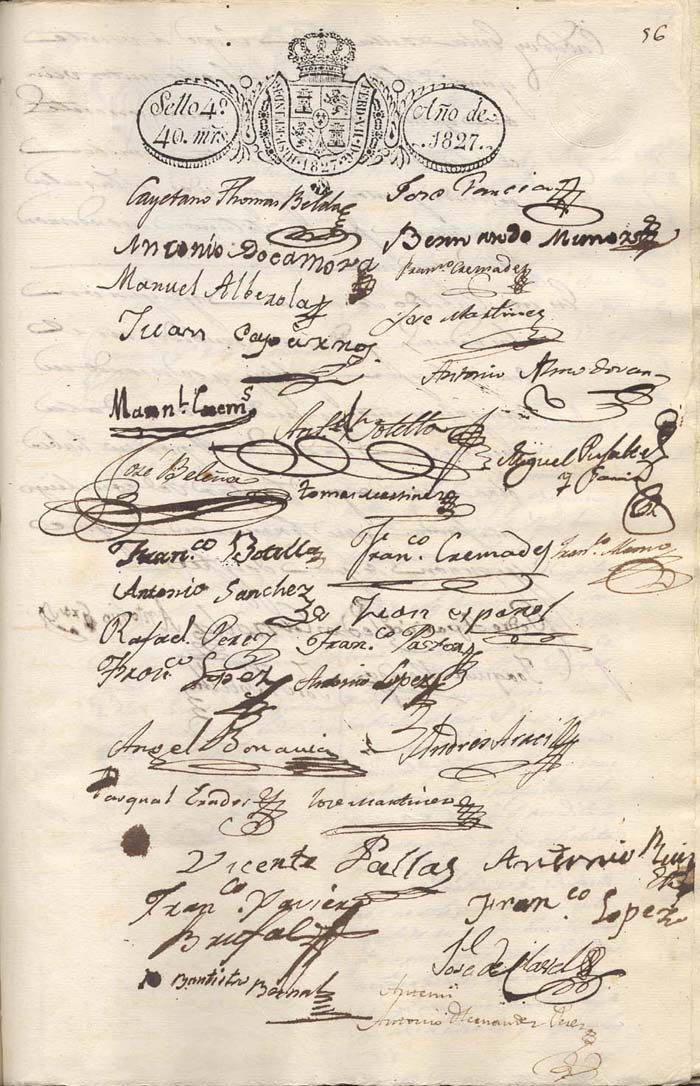 56
Sello 4º
40. mrs
Año de
1827.
1827
Cayetano Thomas Belda
Jose Garcia
Antonio Rocamora
Bernardo Munoz
Manuel Alberola
Franco Cremades
Juan
Jose Martinez
Antonio Almodovar
Manl.
Botella
Jose Belena
Tomas Martinez
Miguel
y
Franco Botella
Franco. Cremades
Franco
Antonio Sanchez
Juan español
Rafael Perez
Franco. Pastor
Franco Lopez
Antonio Lopez
Angel Bonavia
Andres Aracil
Pasqual
Jose Martinez
Vicente Pallas
Antonio Ruiz
Franco. Xavier
Brufal
Franco Lopez
Jose de
Bautista Bernal
Antoni
Antonio Hernandez Perez